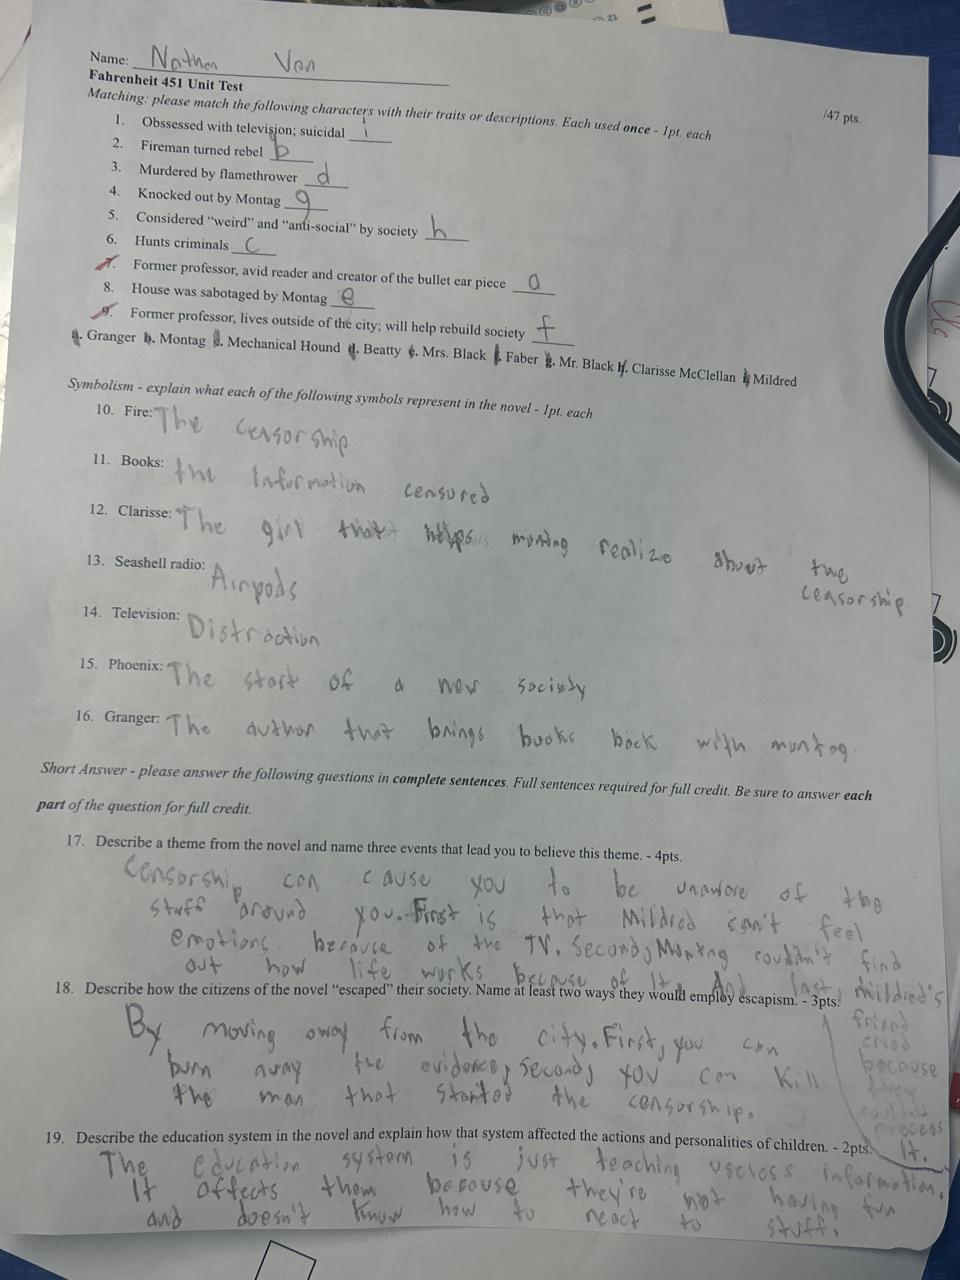 Name: Nathan Van
/47 pts.
Fahrenheit 451 Unit Test
Matching: please match the following characters with their traits or descriptions. Each used once - 1pt. each
1. Obssessed with television; suicidal i
2. Fireman turned rebel b
3. Murdered by flamethrower d
4. Knocked out by Montag g
5. Considered "weird" and "anti-social" by society h
6. Hunts criminals c
7. Former professor, avid reader and creator of the bullet ear piece a
8. House was sabotaged by Montag e
9. Former professor, lives outside of the city; will help rebuild society f
a. Granger b. Montag c. Mechanical Hound d. Beatty e. Mrs. Black f. Faber g. Mr. Black h. Clarisse McClellan i. Mildred
Symbolism - explain what each of the following symbols represent in the novel - 1pt. each
10. Fire: The censorship
11. Books: the Information censured
12. Clarisse: The girl that helps montag realize about the
ceasorship
13. Seashell radio: Airpods
14. Television: Distraction
15. Phoenix: The start of a new society
16. Granger: The author that brings books back with montag.
Short Answer - please answer the following questions in complete sentences. Full sentences required for full credit. Be sure to answer each
part of the question for full credit.
17. Describe a theme from the novel and name three events that lead you to believe this theme. - 4pts.
Censorship can cause you to be unaware of the
stuff around you. First is that Mildred can't feel
emotions because of the TV. Second, Montag couldn't find
out how life works because of It. And last, mildred's
friend
cried
because
they
couldn't
process
It.
18. Describe how the citizens of the novel "escaped" their society. Name at least two ways they would employ escapism. - 3pts.
By moving away from the city. First, you can
burn away the evidence, second, you can kill
the man that started the censorship.
19. Describe the education system in the novel and explain how that system affected the actions and personalities of children. - 2pts.
The education system is just teaching useless information.
It affects them because they're not having fun
and doesn't know how to react to stuff.